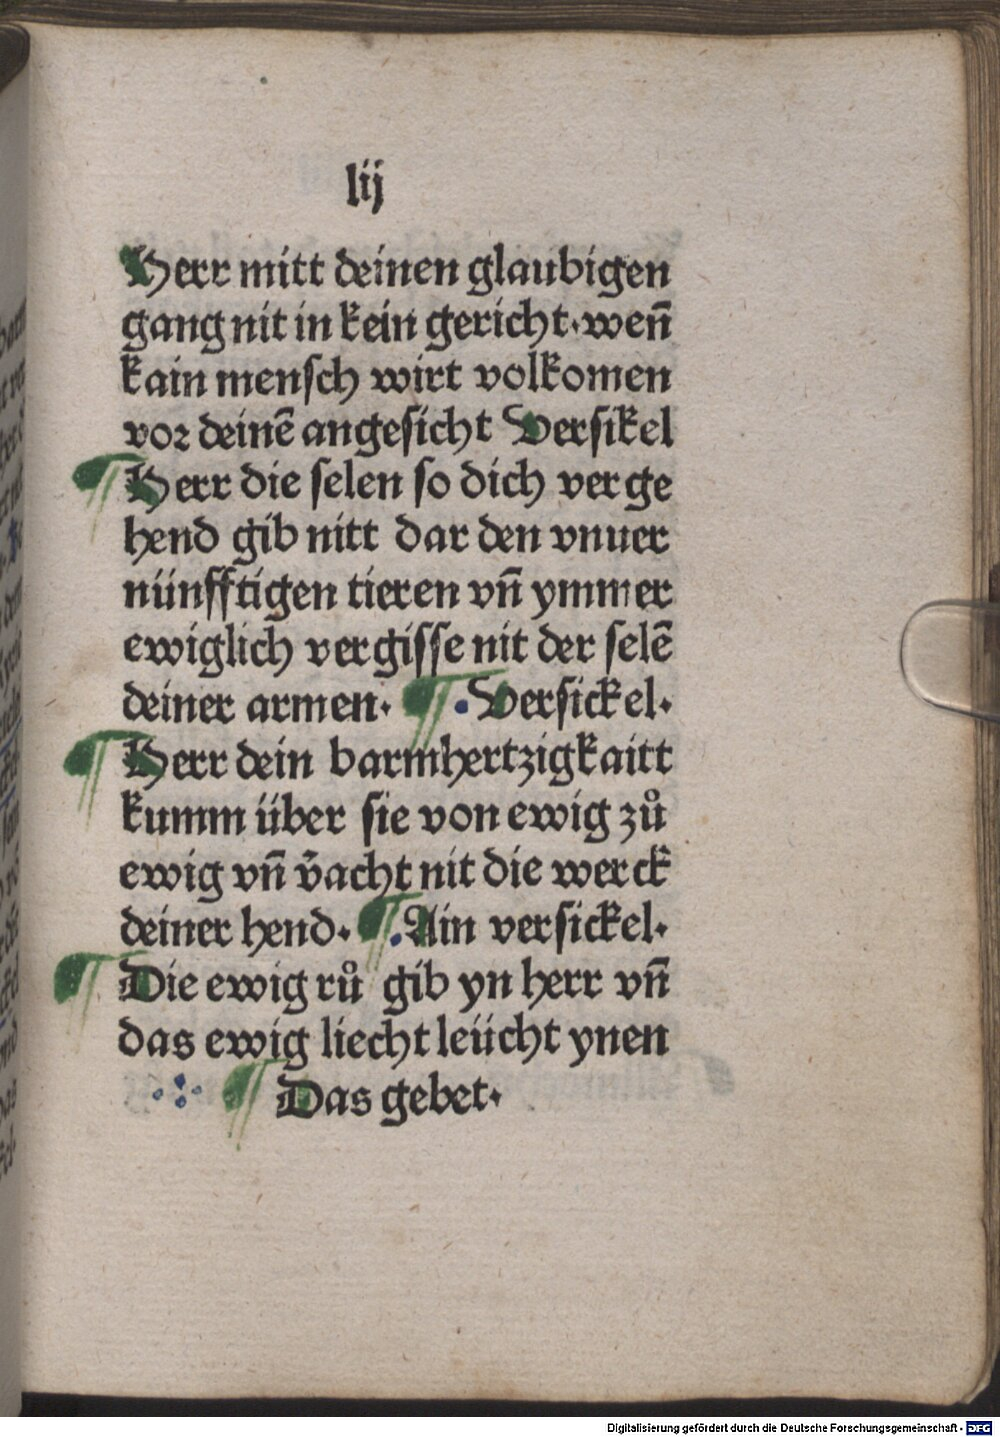 lij
Herr mitt deinen glaubigen
gang nit in kein gericht·wen̄
kain mensch wirt volkomen
vor deinē angesicht Versikel
¶ Herr die selen so dich verge
hend gib nitt dar den vnuer
nünfftigen tieren vn̄ ymmer
ewiglich vergisse nit der selē
deiner armen· ¶ ·Versickel·
¶ Herr dein barmhertzigkaitt
kumm über sie von ewig zů
ewig vn̄ v̄acht nit die werck
deiner hend· ¶ .Ain versickel·
¶ Die ewig rů gib yn herr vn̄
das ewig liecht leücht ynen
¶ Das gebet·
Digitalisierung gefördert durch die Deutsche Forschungsgemeinschaft - DFG